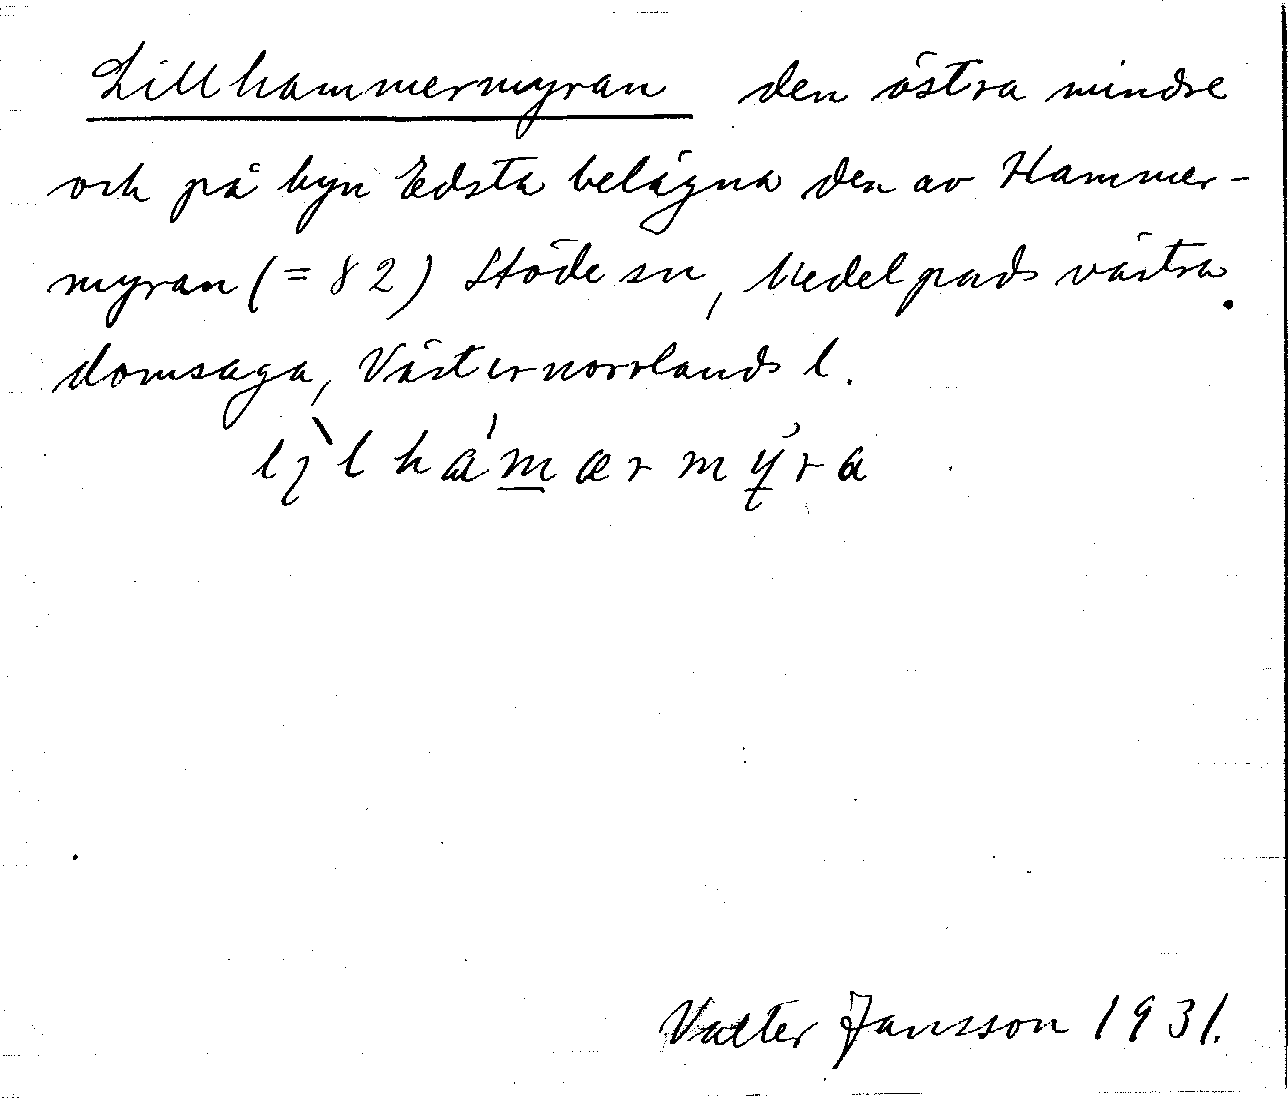 Lillhammermyran den östra mindre
och på byn Edsta belägna den av Hammer-
myran (= 82) Stöde sn, Medelpads västra
domsaga, Västernorrlands l.
lìlhámærmýra
Valter Jansson 1931.